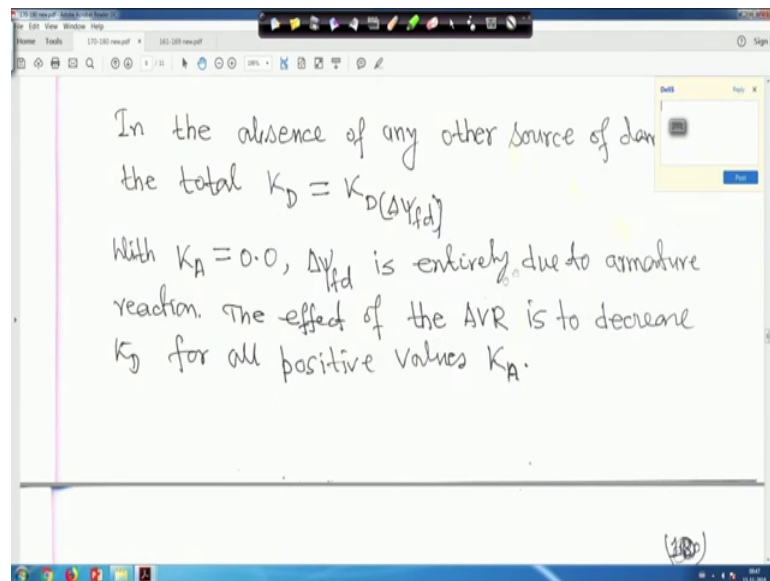 170-180 new.pdf - Adobe Acrobat Reader DC
File Edit View Window Help
Home Tools 170-180 new.pdf × 161-169 new.pdf Sign
In the absence of any other source of dam
the total K_D = K_D(ΔΨ_fd)
With K_A = 0.0, ΔΨ_fd is entirely due to armature
reaction. The effect of the AVR is to decrease
K_D for all positive values K_A.
Reply ×
Post